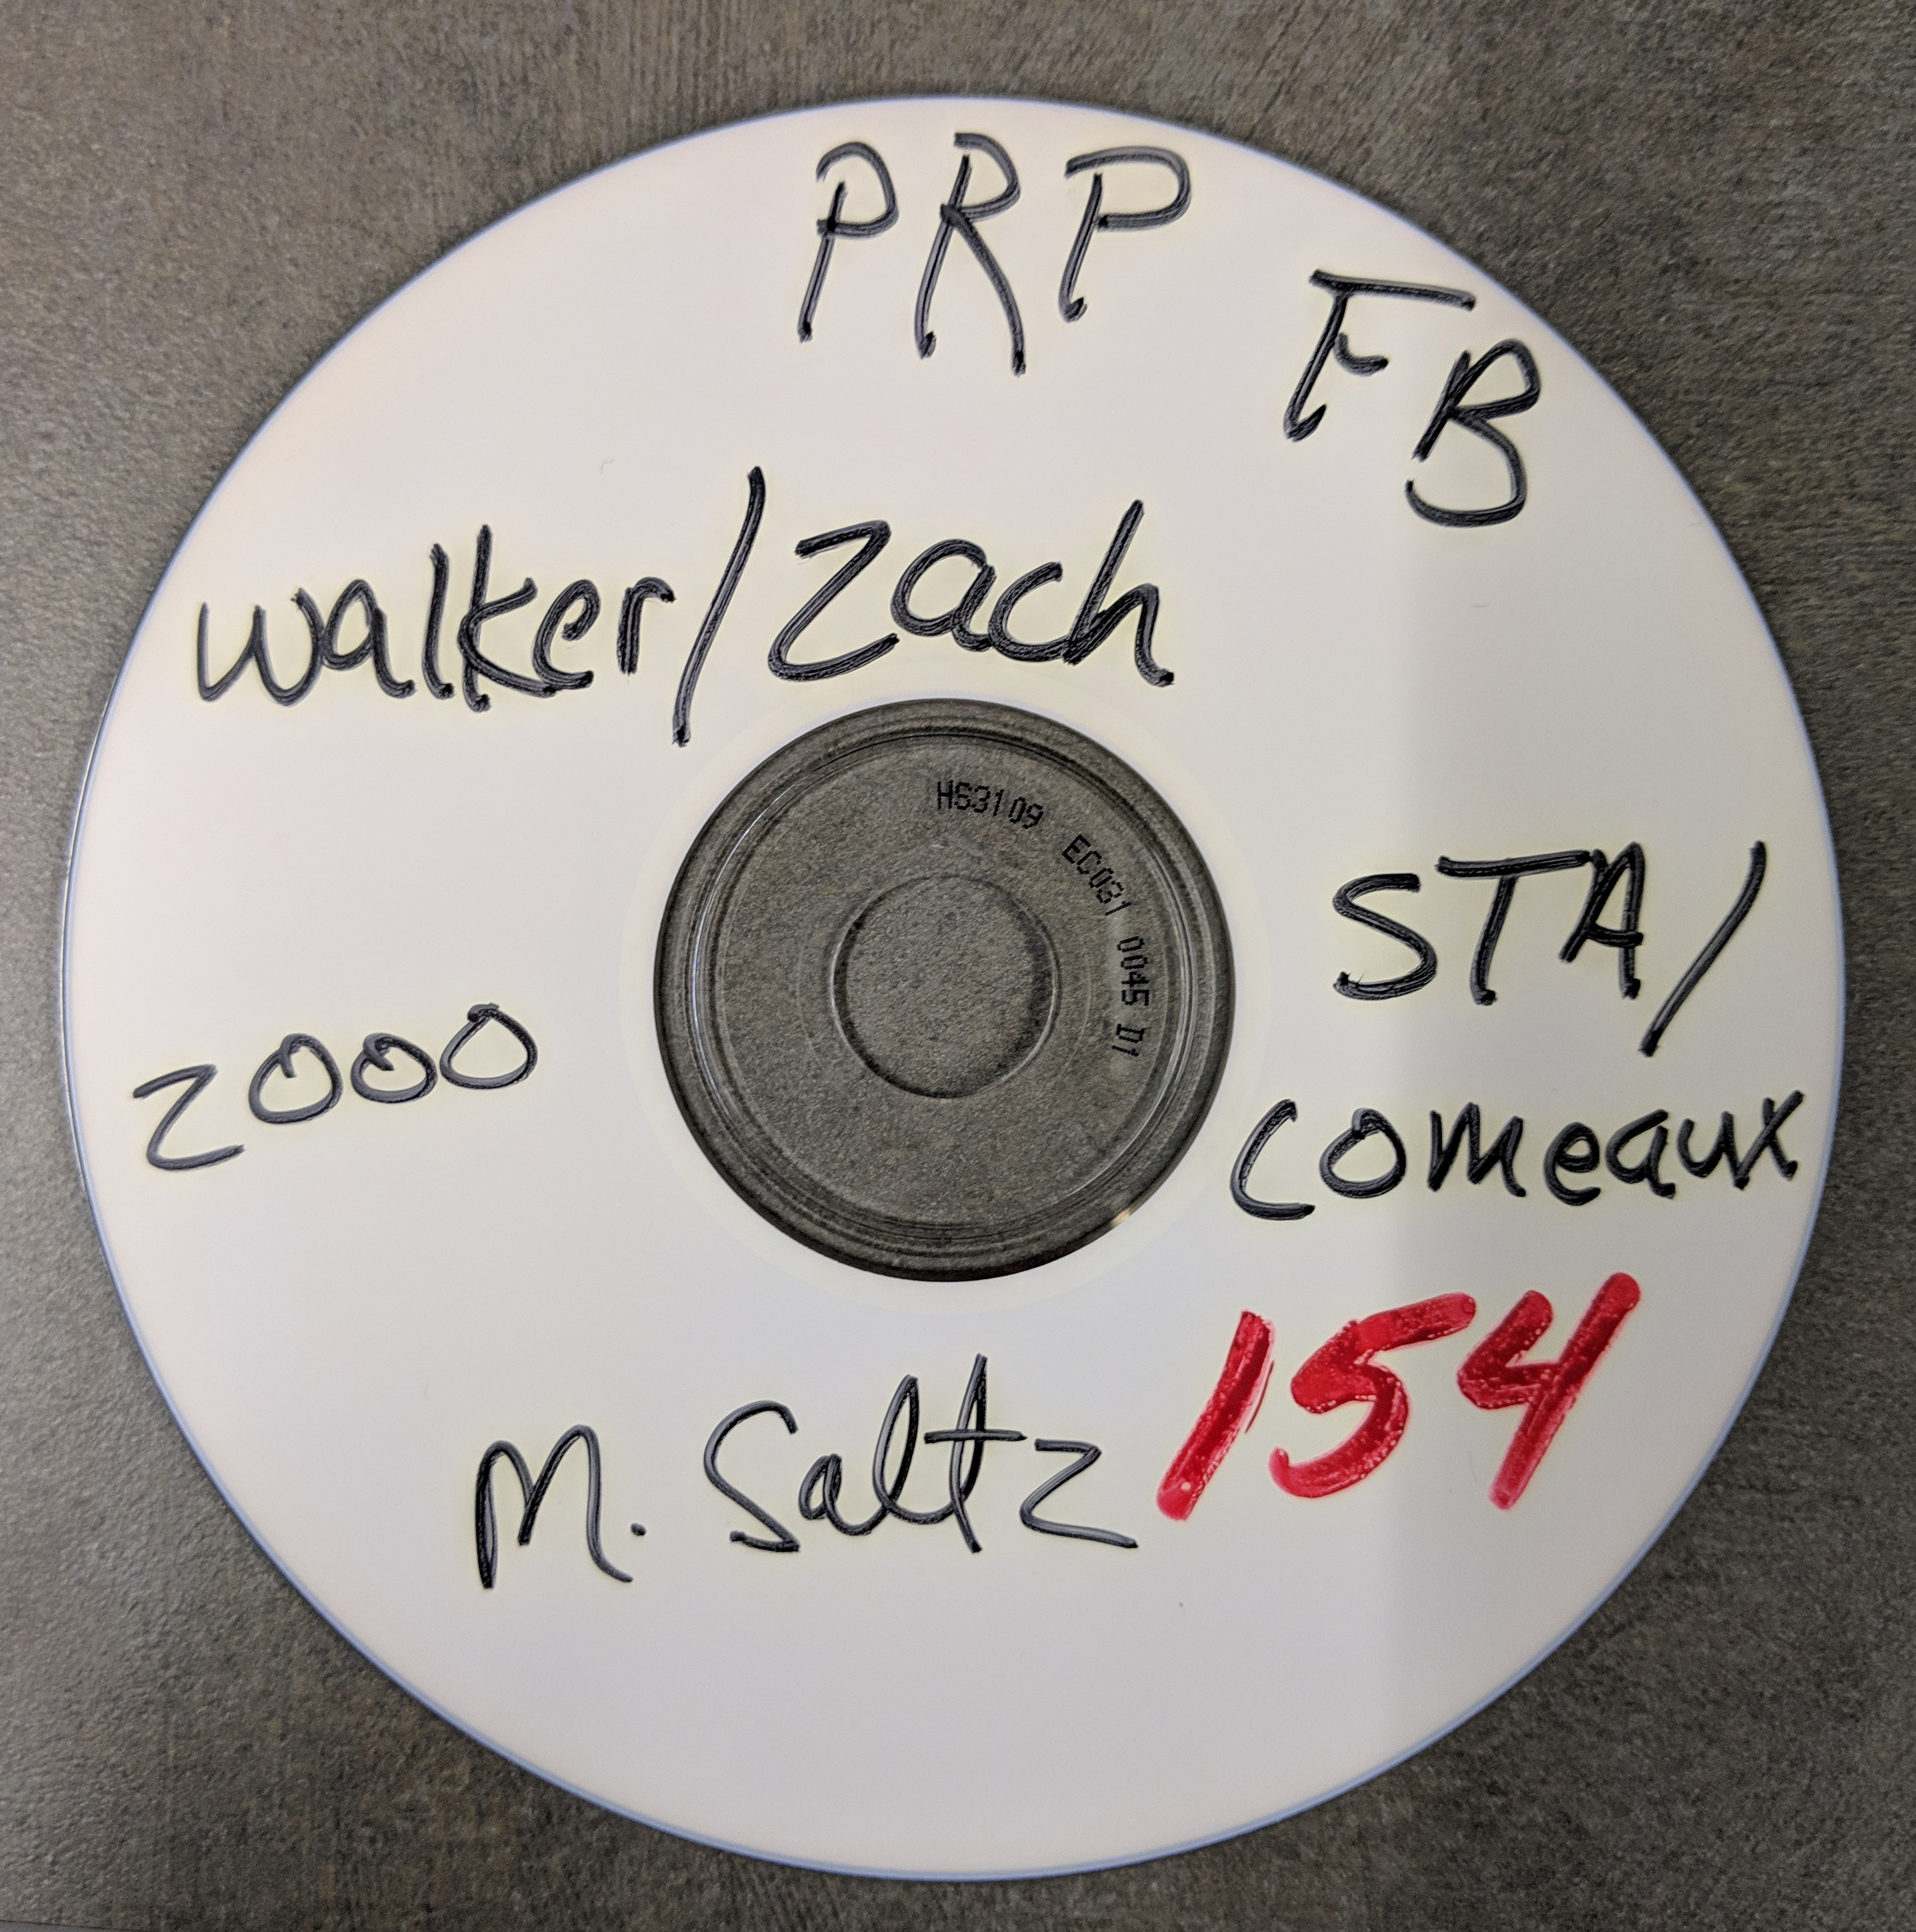 PRP
FB
Walker/Zach
HS3109 EC031 0045 D1
STA/
Comeaux
2000
154
M. Saltz